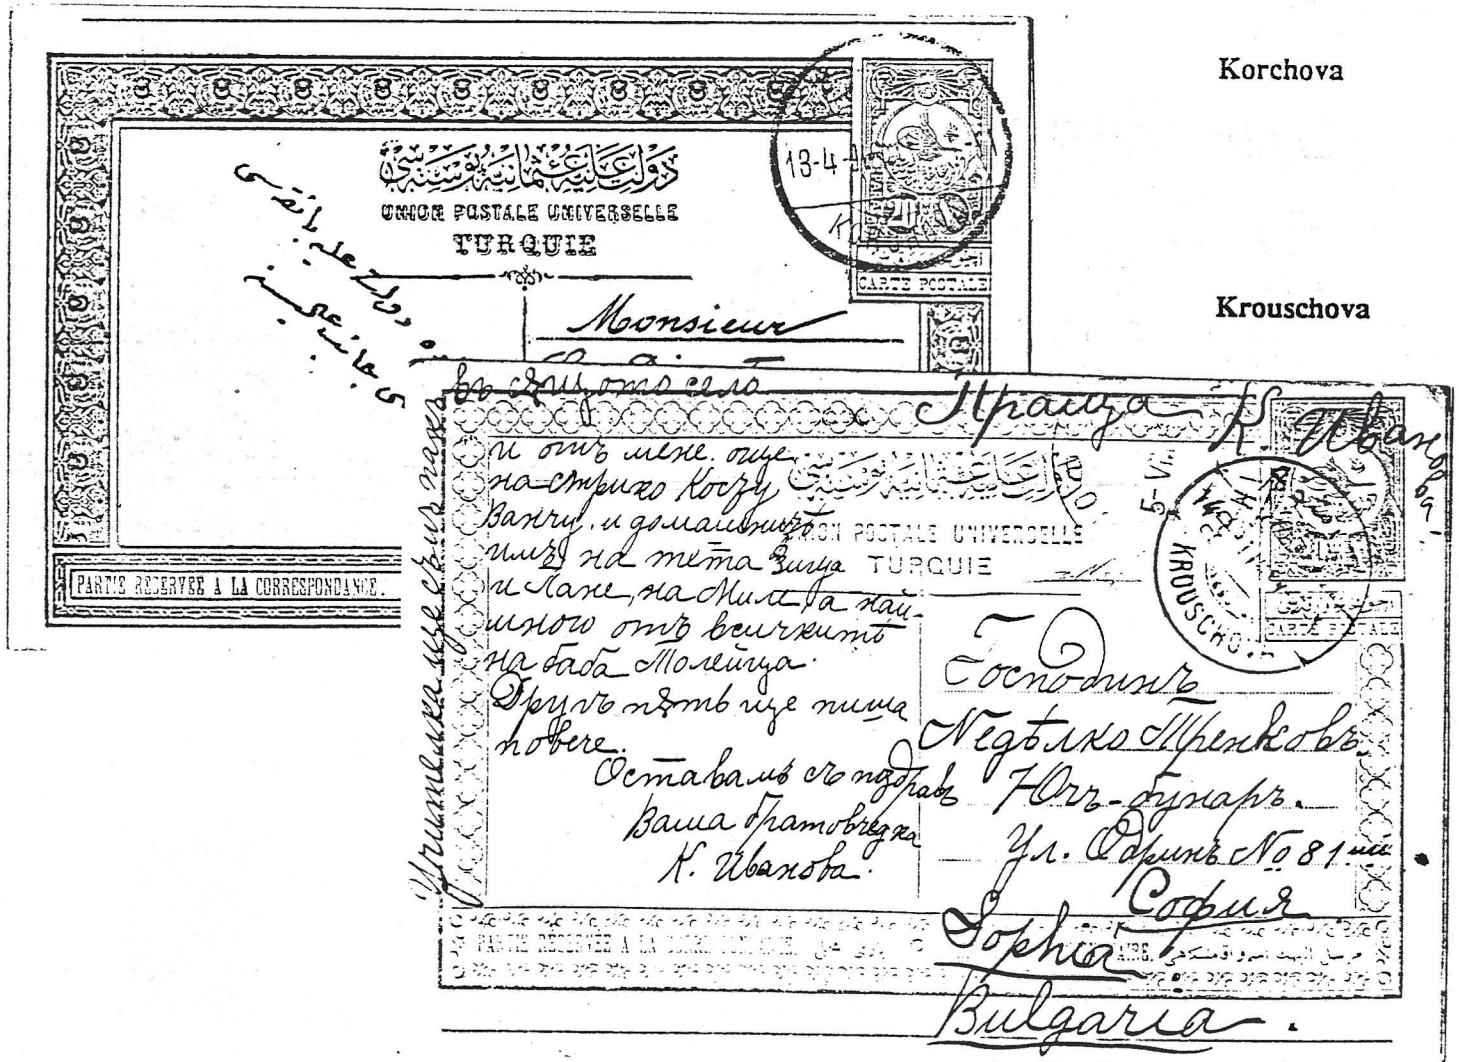 Korchova
Krouschova
دولت علیه عثمانیه پوسته سی
UNION POSTALE UNIVERSELLE
TURQUIE
13-4
CARTE POSTALE
Monsieur
PARTIE RÉSERVÉE A LA CORRESPONDANCE.
село
Праща К. Иванова
и отъ мене още
на стрико Коczу
Ванчу, и домашнитѣ
имъ, на тета Зица
и Лане, на Миле, а най-
много отъ всичкитѣ
на баба Молейца.
Другъ пѫть ще пиша
повече.
Оставамъ съ поздравъ
Ваша братовчедка
К. Иванова.
Учителка
UNION POSTALE UNIVERSELLE
TURQUIE
5-VI
KROUSCHOVA
CARTE POSTALE
Господинъ
Недѣлко Тренковъ
Ючъ-бунаръ.
Ул. Одринъ No 81
София
Sophia
Bulgaria.
PARTIE RÉSERVÉE A LA CORRESPONDANCE.